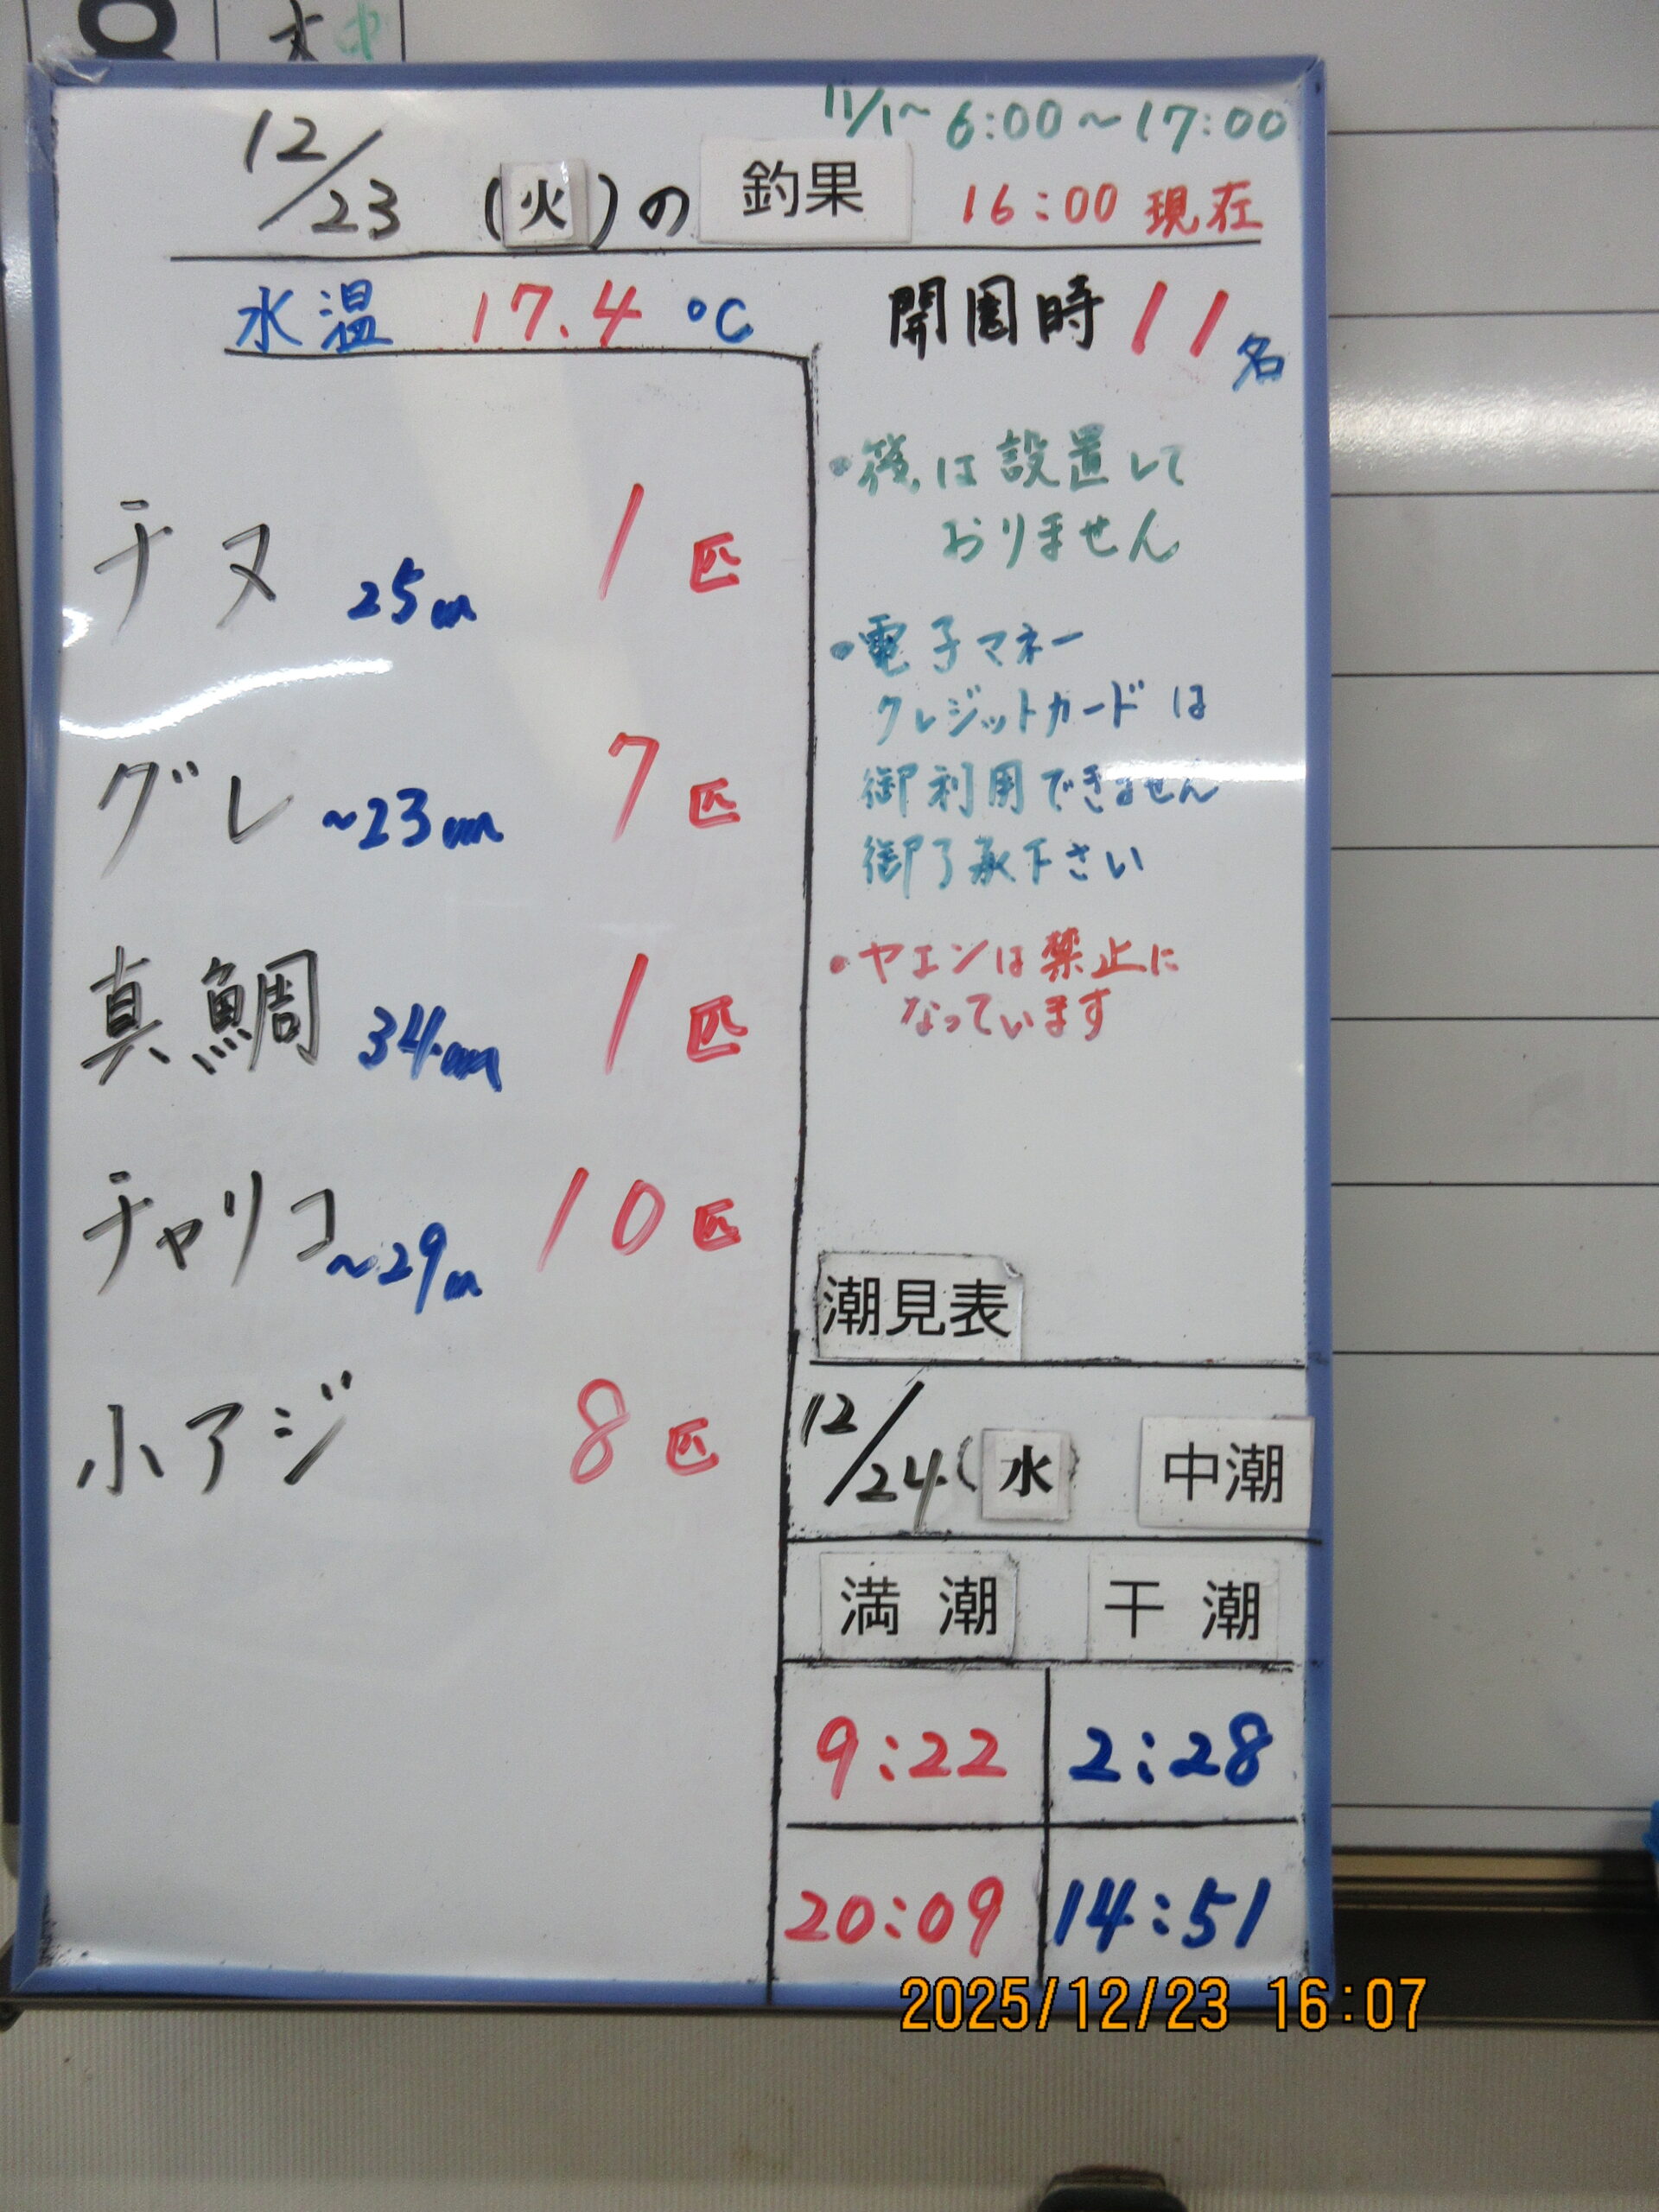 木 中
11/1~ 6:00~17:00
12/23 (火)の 釣果 16:00 現在
水温 17.4 ℃
開園時 11名
チヌ 25cm 1匹
グレ ~23cm 7匹
真鯛 34cm 1匹
チャリコ ~29cm 10匹
小アジ 8匹
・筏は設置して
おりません
・電子マネー
クレジットカードは
御利用できません
御了承下さい
・ヤエンは禁止に
なっています
潮見表
12/24(水) 中潮
満潮 干潮
9:22 2:28
20:09 14:51
2025/12/23 16:07